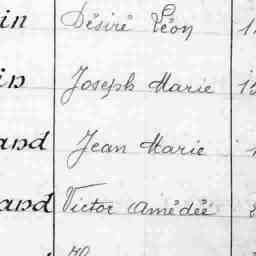 in Désiré Léon 1
in Joseph Marie 1
and Jean Marie
and Victor Amédéé